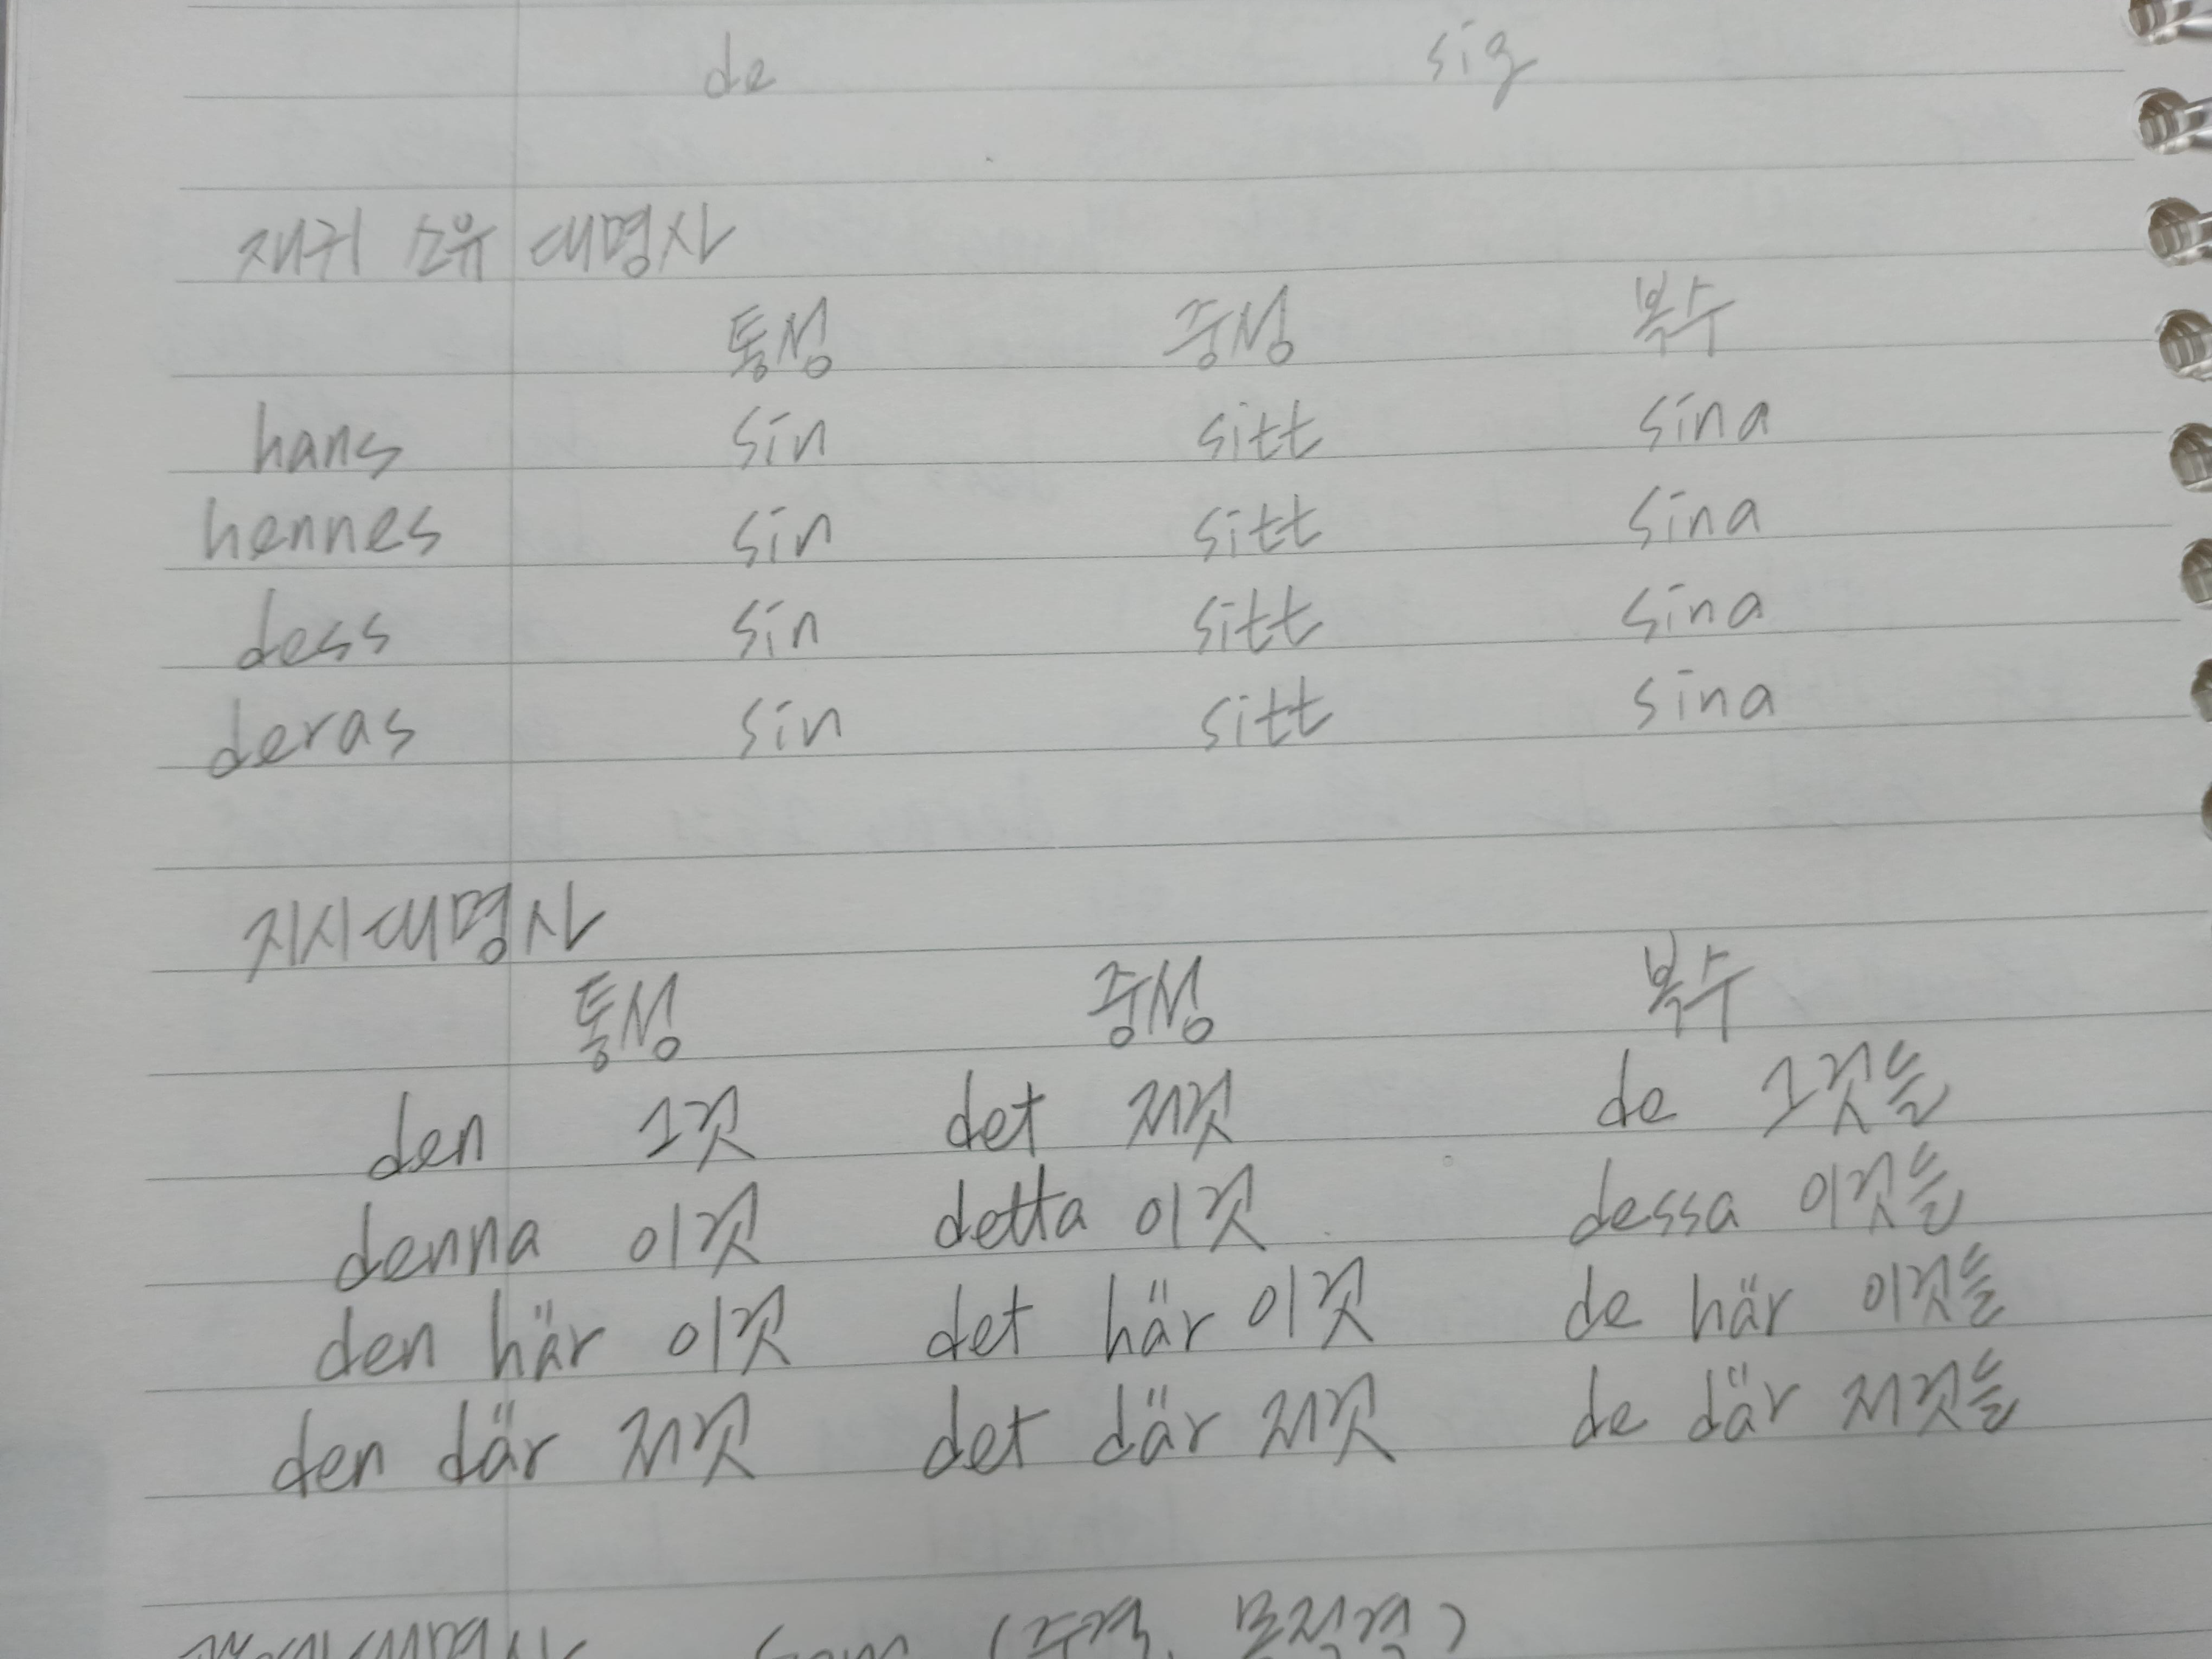 de sig
재귀 소유 대명사
통성 중성 복수
hans sin sitt sina
hennes sin sitt sina
dess sin sitt sina
deras sin sitt sina
지시대명사
통성 중성 복수
den 그것 det 저것 de 그것들
denna 이것 detta 이것 dessa 이것들
den här 이것 det här 이것 de här 이것들
den där 저것 det där 저것 de där 저것들
som (주격, 목적격)